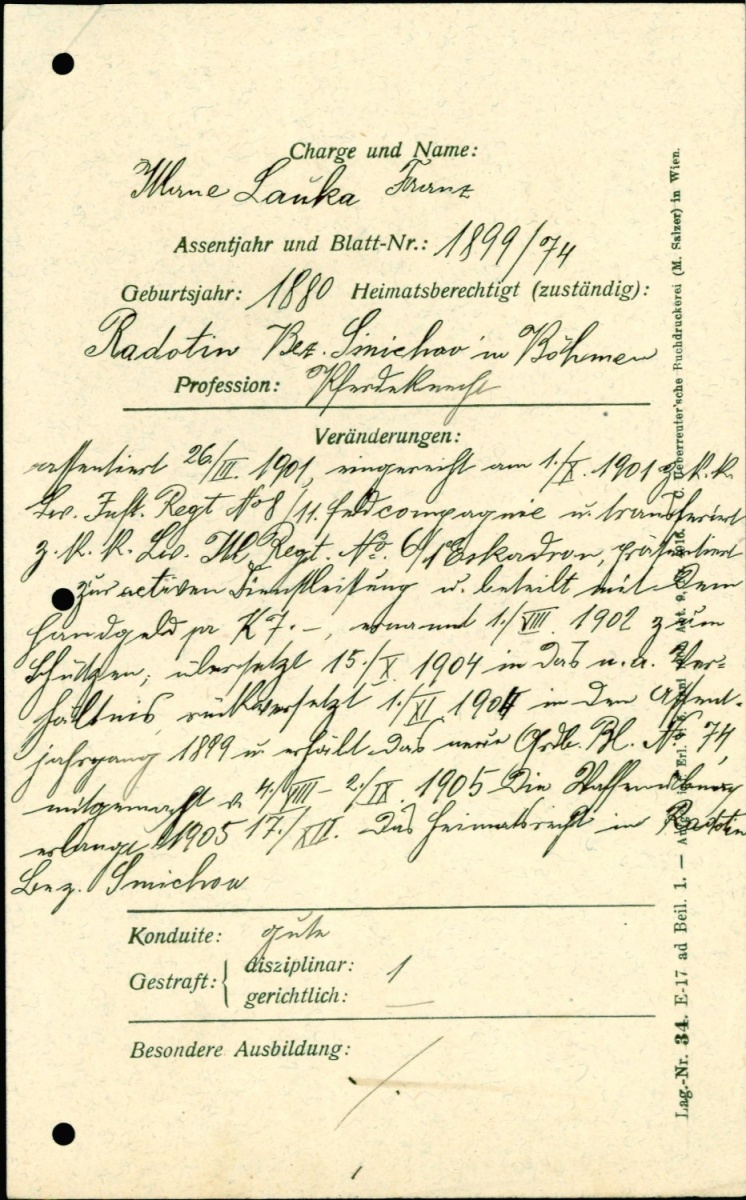 Charge und Name:
Ulane Lauka Franz
Assentjahr und Blatt-Nr.: 1899/74
Geburtsjahr: 1880 Heimatsberechtigt (zuständig):
Radotin Bez. Smichov in Böhmen
Profession: Pferdeknecht
Veränderungen:
assentiert 26./III. 1901, eingereiht am 1./X. 1901 z. k. k.
Lw. Inft. Regt No 8/11. Feldcompagnie u. transferiert
z. k. k. Lw. Ul. Regt. No. 6/1 Eskadron, präsentiert
zur activen Dienstleistung u. beteilt mit dem
Handgeld pr K 7.–, ernannt 1./VIII 1902 zum
Schützen; übersetzt 15./X. 1904 in das n. a. Ver=
hältnis, rückversetzt 1./XI. 1904 in den Assent-
jahrgang 1899 u. erhält das neue Grdb. Bl. No 74,
mitgemacht v. 4./VIII – 2./IX. 1905 Die Waffenübung
erlangt 1905 17./XII. das Heimatsrecht in Radotin
Bez. Smichow
Konduite: gute
Gestraft: disziplinar: 1
gerichtlich: —
Besondere Ausbildung:
Lag.-Nr. 34. E-17 ad Beil. 1. —
Ueberreuter'sche Buchdruckerei (M. Salzer) in Wien.